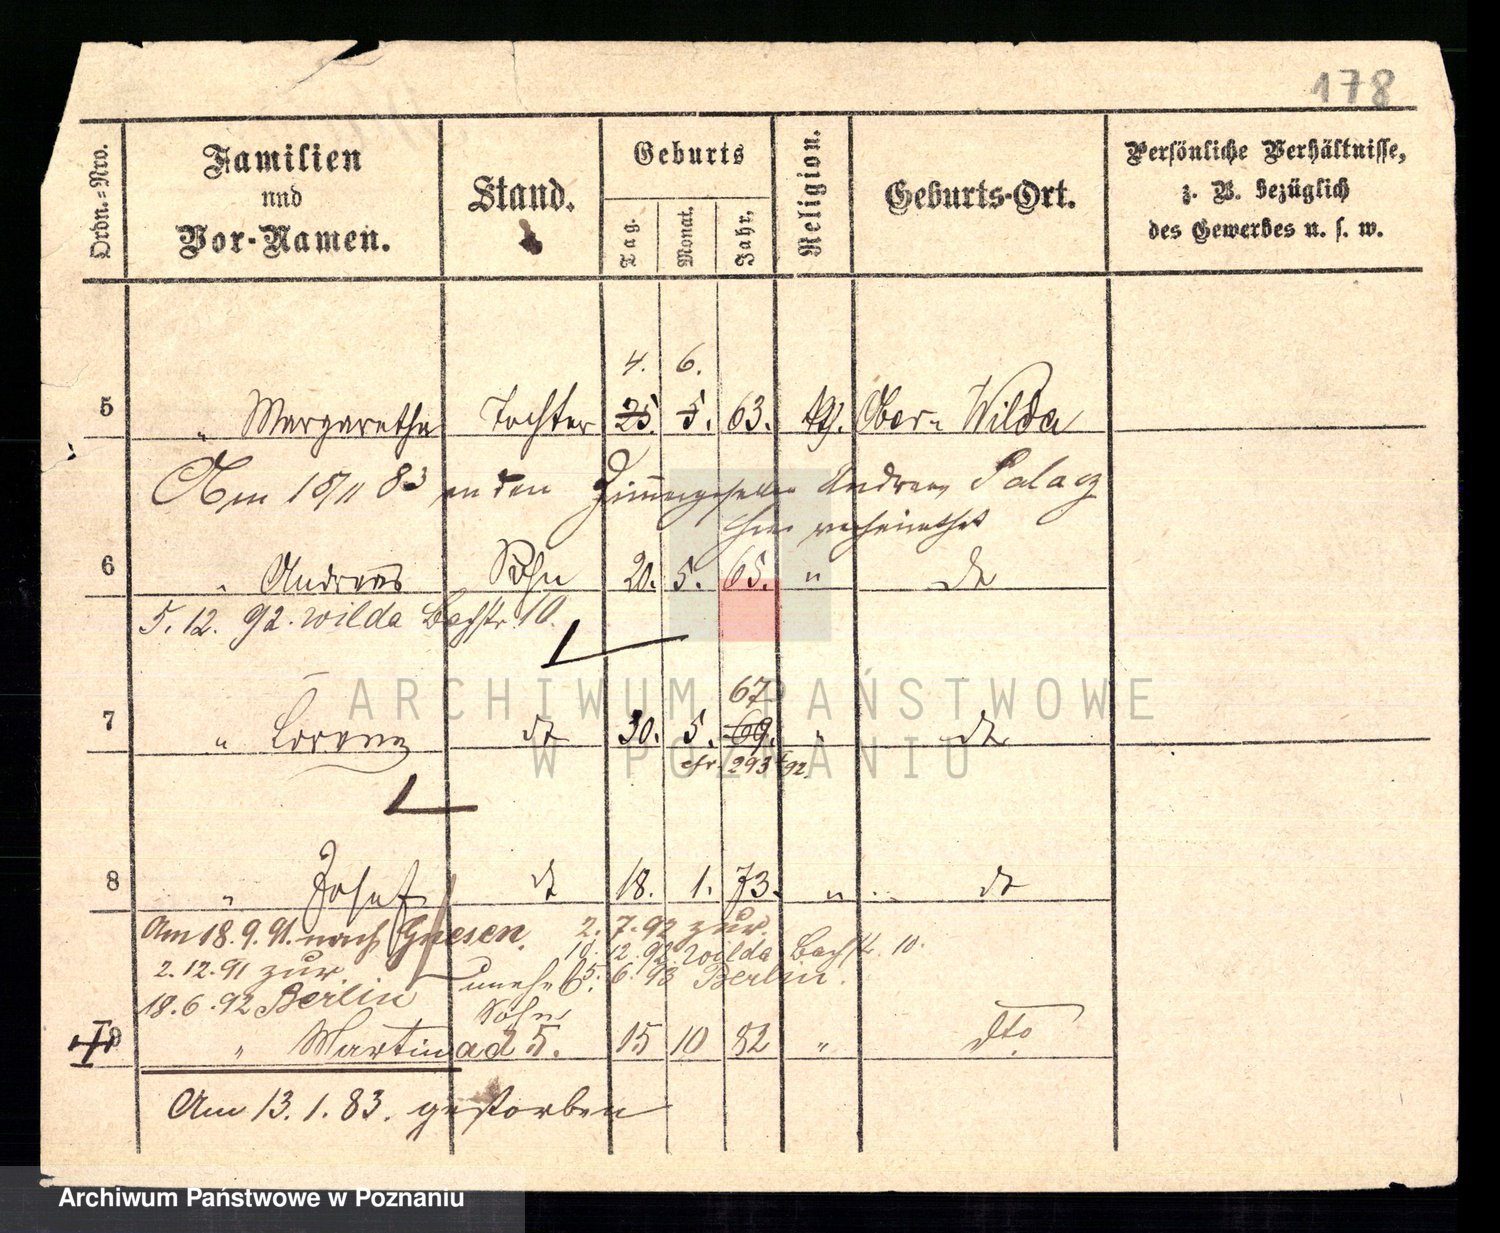 178
Ordn.-Nro.
Familien
und
Vor-Namen.
Stand.
Geburts
Tag.
Monat.
Jahr.
Religion.
Geburts-Ort.
Persönliche Verhältnisse,
z. B. bezüglich
des Gewerbes u. s. w.
4. 6.
5 " Margaretha Tochter 25. 5. 63. Ober- Wilda
Am 18/11 83 an den Zimmergesellen Andreas Palacz
hier verheirathet
6 " Andreas Sohn 20. 5. 65. " dt
5. 12. 92. Wilda Bachstr. 10.
67
7 " Lorenz dt 30. 5. 69. " dt
cfr. 293/92
8 " Josef dt 18. 1. 73. " dt
Am 18. 9. 91. nach Gnesen. 2. 7. 92 zur.
10. 12. 92 Wilda Bachstr. 10.
2. 12. 91 zur. 5. 6. 93 Berlin.
18. 6. 92 Berlin
unehl.
Sohn
9 " Martin ad 5. 15 10 82 " dto
Am 13. 1. 83. gestorben
ARCHIWUM PAŃSTWOWE
W POZNANIU
Archiwum Państwowe w Poznaniu